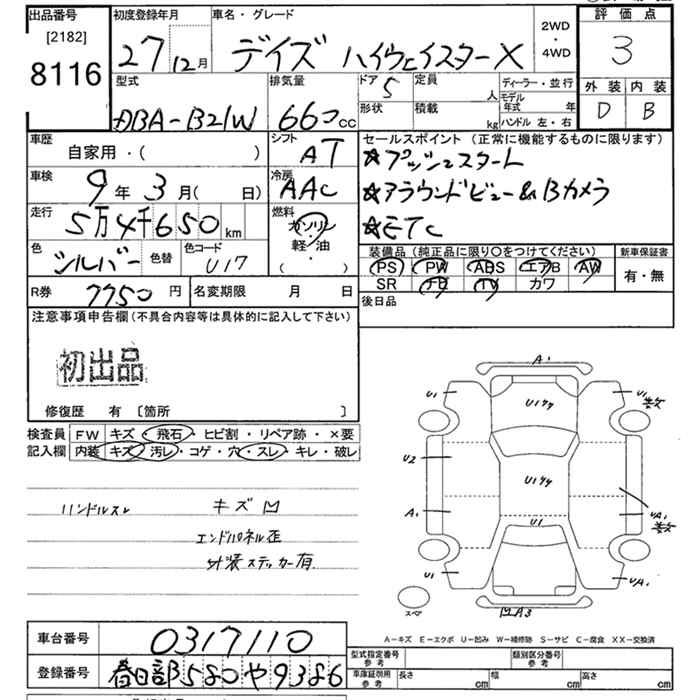 出品番号
[2182]
8116
初度登録年月
27 12月
車名・グレード
デイズ ハイウェイスターX
2WD
・
4WD
評価点
3
外装 内装
D B
型式
DBA-B21W
排気量
660cc
ドア
5
定員
人
形状
積載
kg
ディーラー・並行
モデル年式 年
ハンドル 左・右
車歴
自家用・( )
シフト
AT
セールスポイント(正常に機能するものに限ります)
☆プッシュスタート
☆アラウンドビュー&Bカメラ
☆ETC
車検
9年3月( 日)
冷房
AAC
走行
5万4千650km
燃料
ガソリン
軽・油
( )
色
シルバー
色替
色コード
U17
装備品(純正品に限り〇をつけてください)
PS PW ABS エアB AW
SR TV カワ
新車保証書
有・無
R券
7750円
名変期限 月 日
後日品
注意事項申告欄(不具合内容等は具体的に記入して下さい)
初出品
修復歴 有 〔箇所 〕
検査員
記入欄
FW キズ・飛石・ヒビ割・リペア跡・×要
内装 キズ・汚レ・コゲ・穴・スレ・キレ・破レ
ハンドルスレ
キズ凹
エンドパネル歪
外装ステッカー有
A1
U1
U1
U1
U2
U1
A1
UA1
U1
UA1
A3
スペア
A-キズ E-エクボ U-凹み W-補修跡 S-サビ C-腐食 XX-交換済
車台番号
0317110
登録番号
春日部580や9386
型式指定番号
参考
類別区分番号
参考
車庫証明用
参考
長さ cm
幅 cm
高さ cm